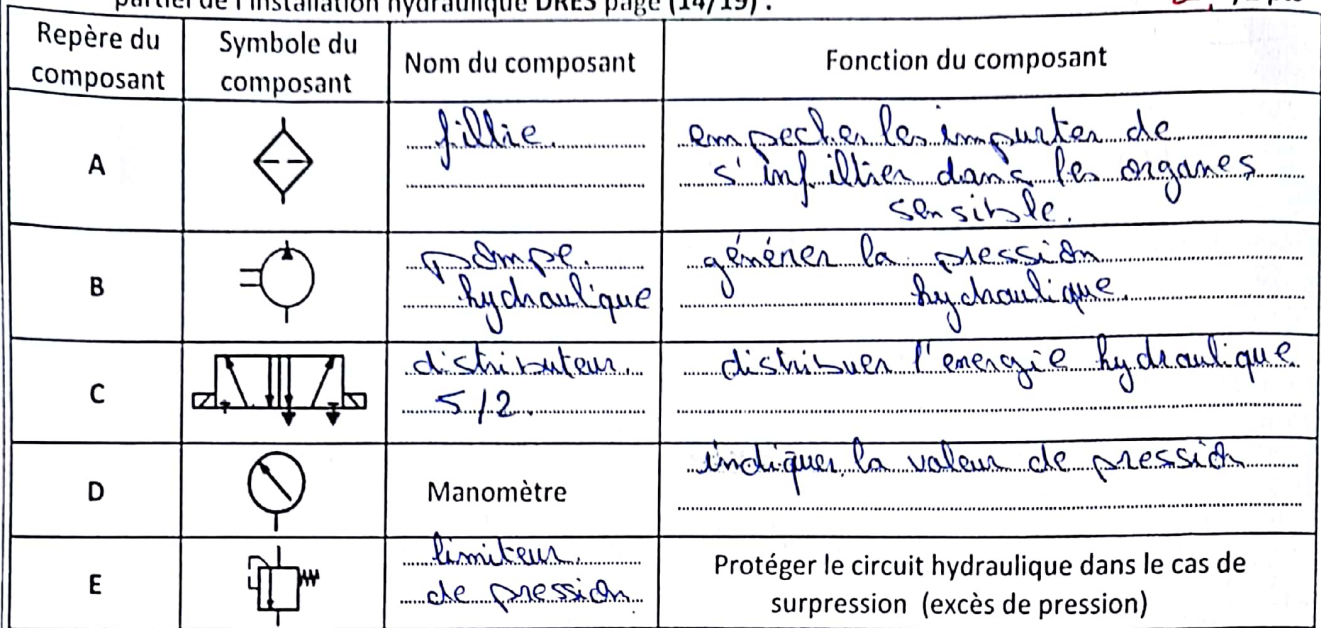 partiel de l'installation hydraulique DRES page (14/19) :
Repère du composant
Symbole du composant
Nom du composant
Fonction du composant
A
filtre
empecher les impurter de
s'infiltrer dans les organes
sensible.
B
pompe.
hydraulique
générer la pression
hydraulique.
C
distributeur.
5/2.
distribuer l'energie hydraulique
D
Manomètre
indiquer la valeur de pression
E
limiteur.
de pression
Protéger le circuit hydraulique dans le cas de
surpression (excès de pression)